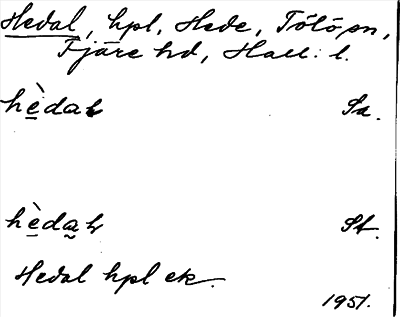 Hedal, hpl, Hede, Tölö sn,
Fjäre hd, Hall. l.
hèdaɫ Sa.
hèda̰ɫ St.
Hedal hpl ek.
1951.